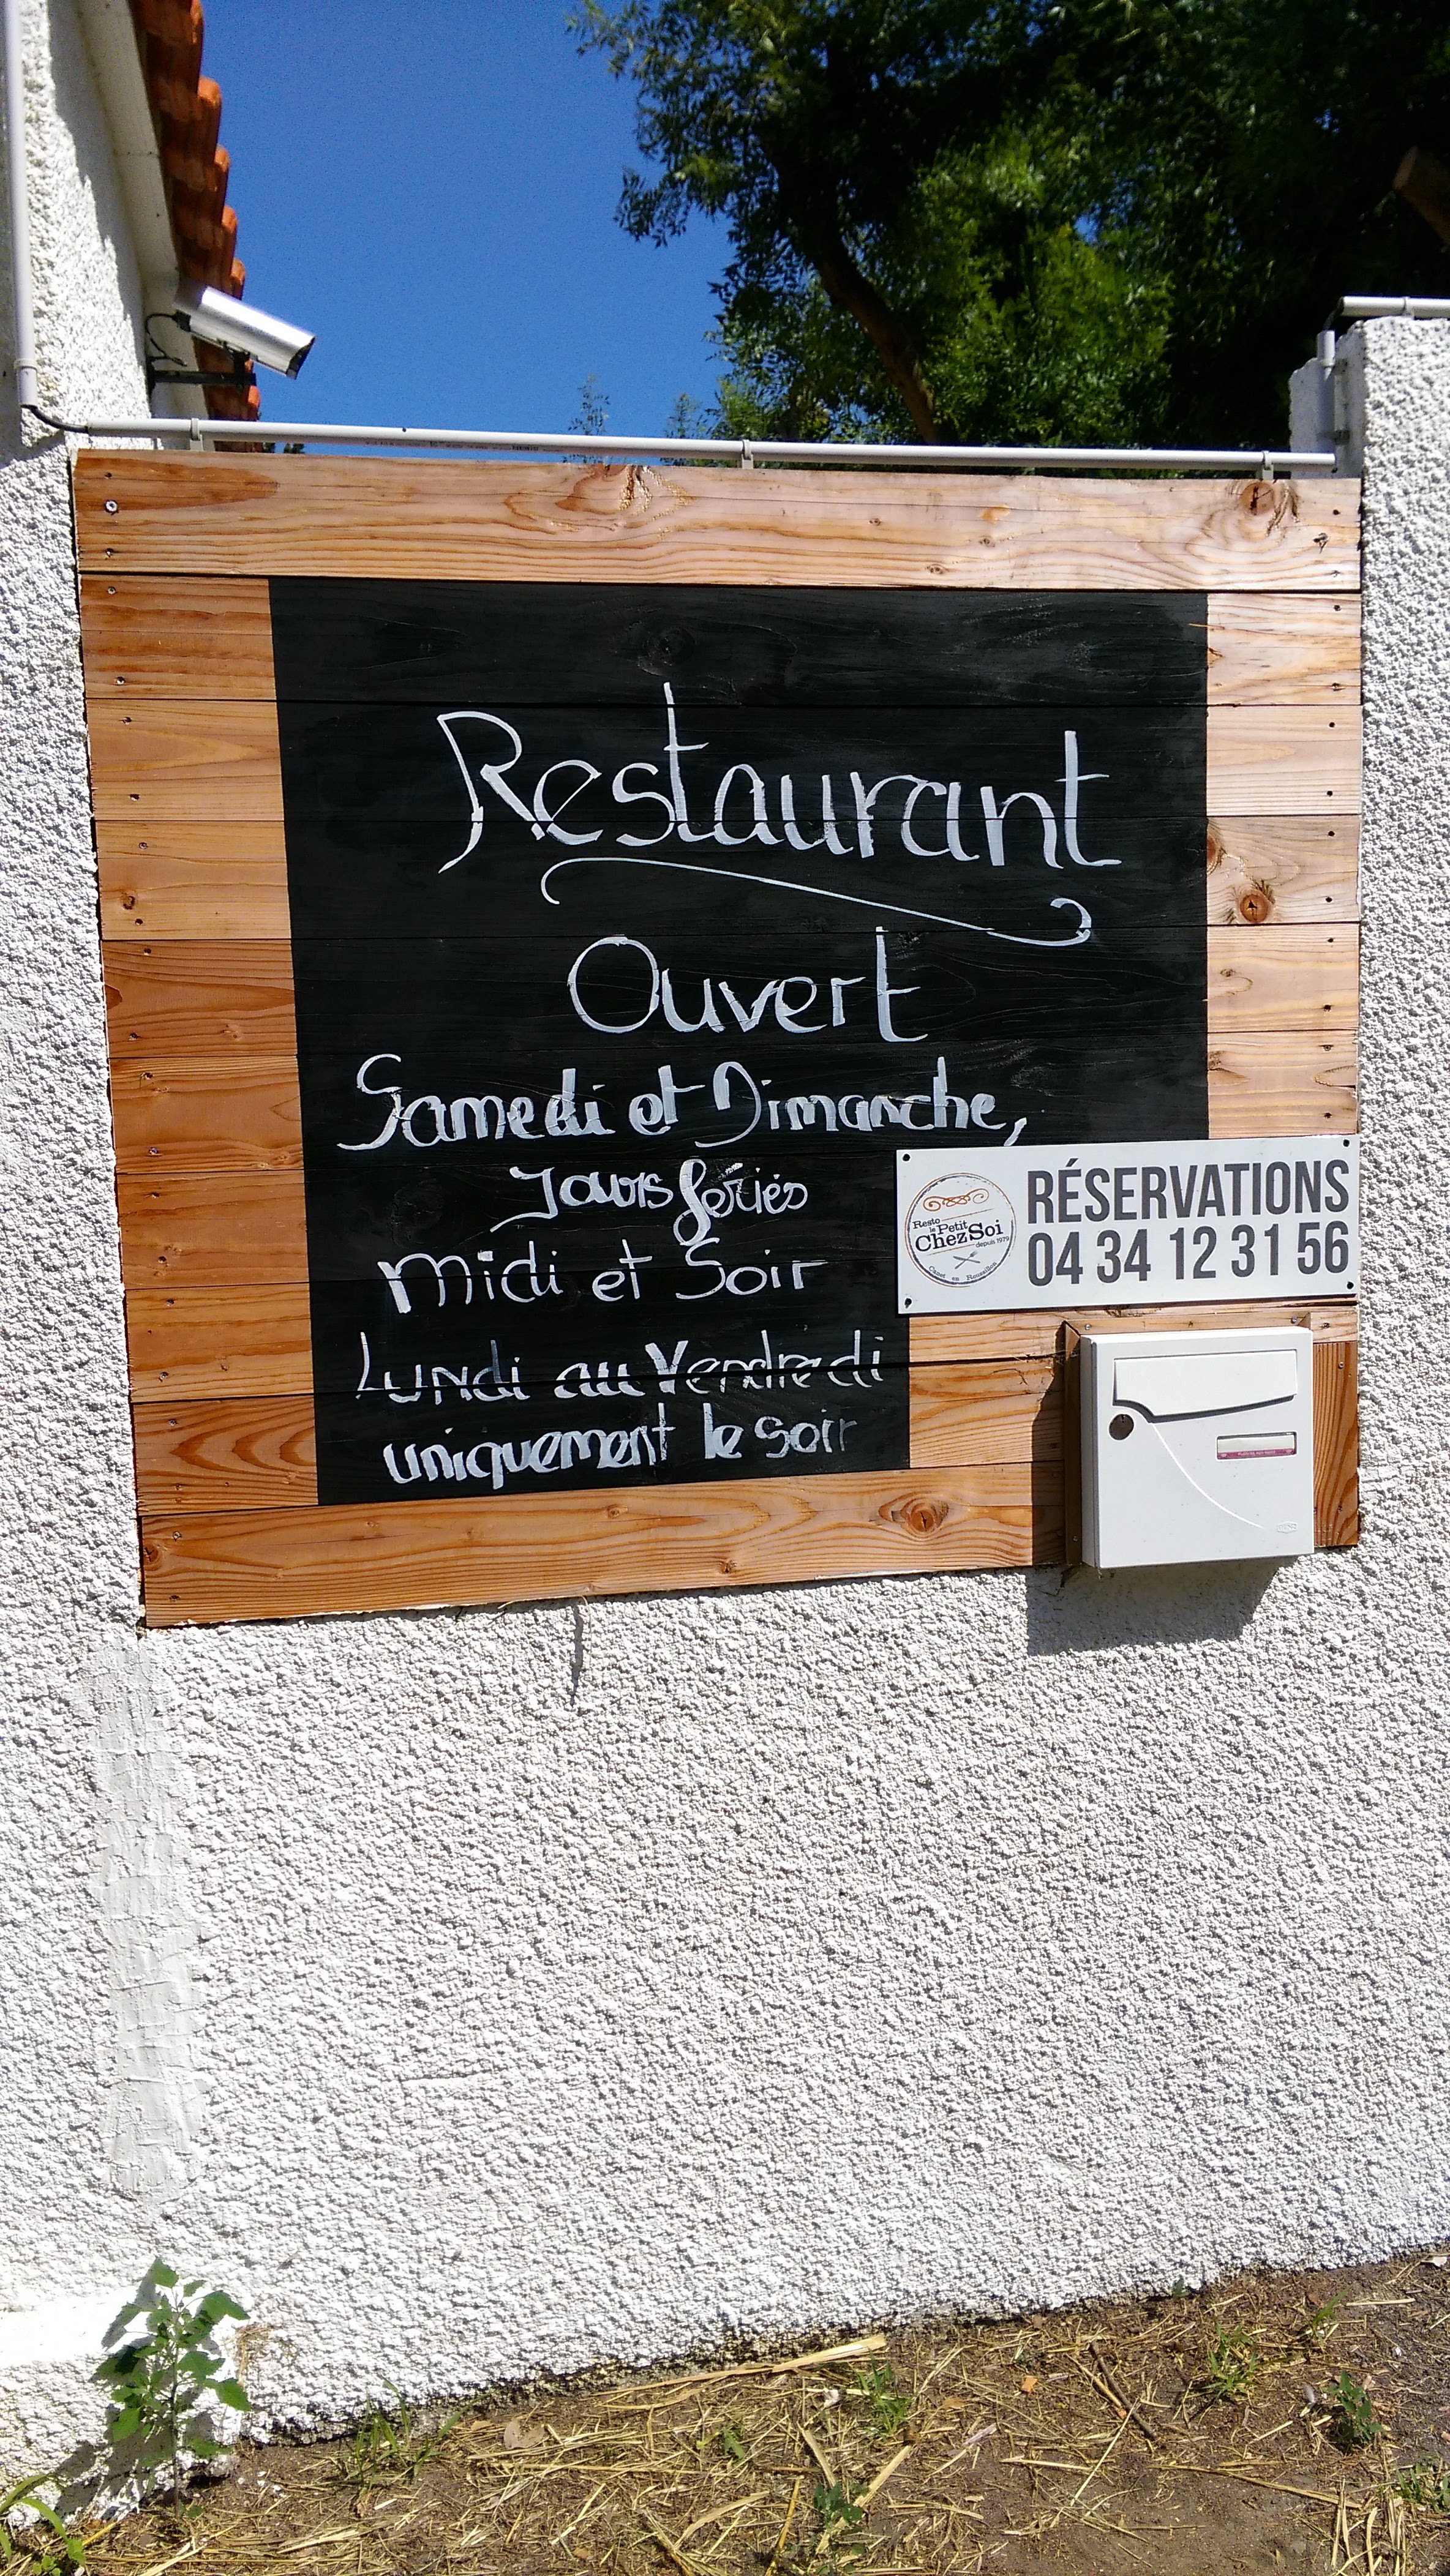 Restaurant
Ouvert
Samedi et Dimanche,
Jours fériés
midi et Soir
Lundi au Vendredi
uniquement le soir
RÉSERVATIONS
04 34 12 31 56
Resto
le Petit
Chez Soi
depuis 1979
Canet en Roussillon